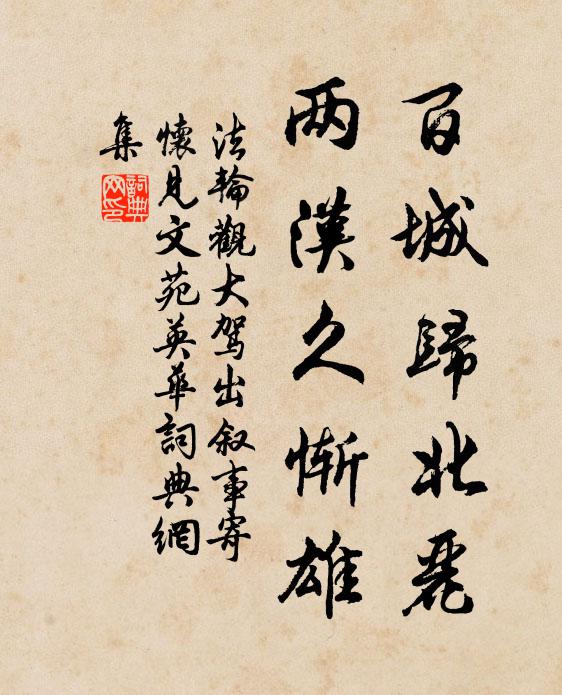 百城歸北麗
两漢久慚雄
法輪觀大駕出叙事寄
懷見文苑英華詞典網
集
詞典网印